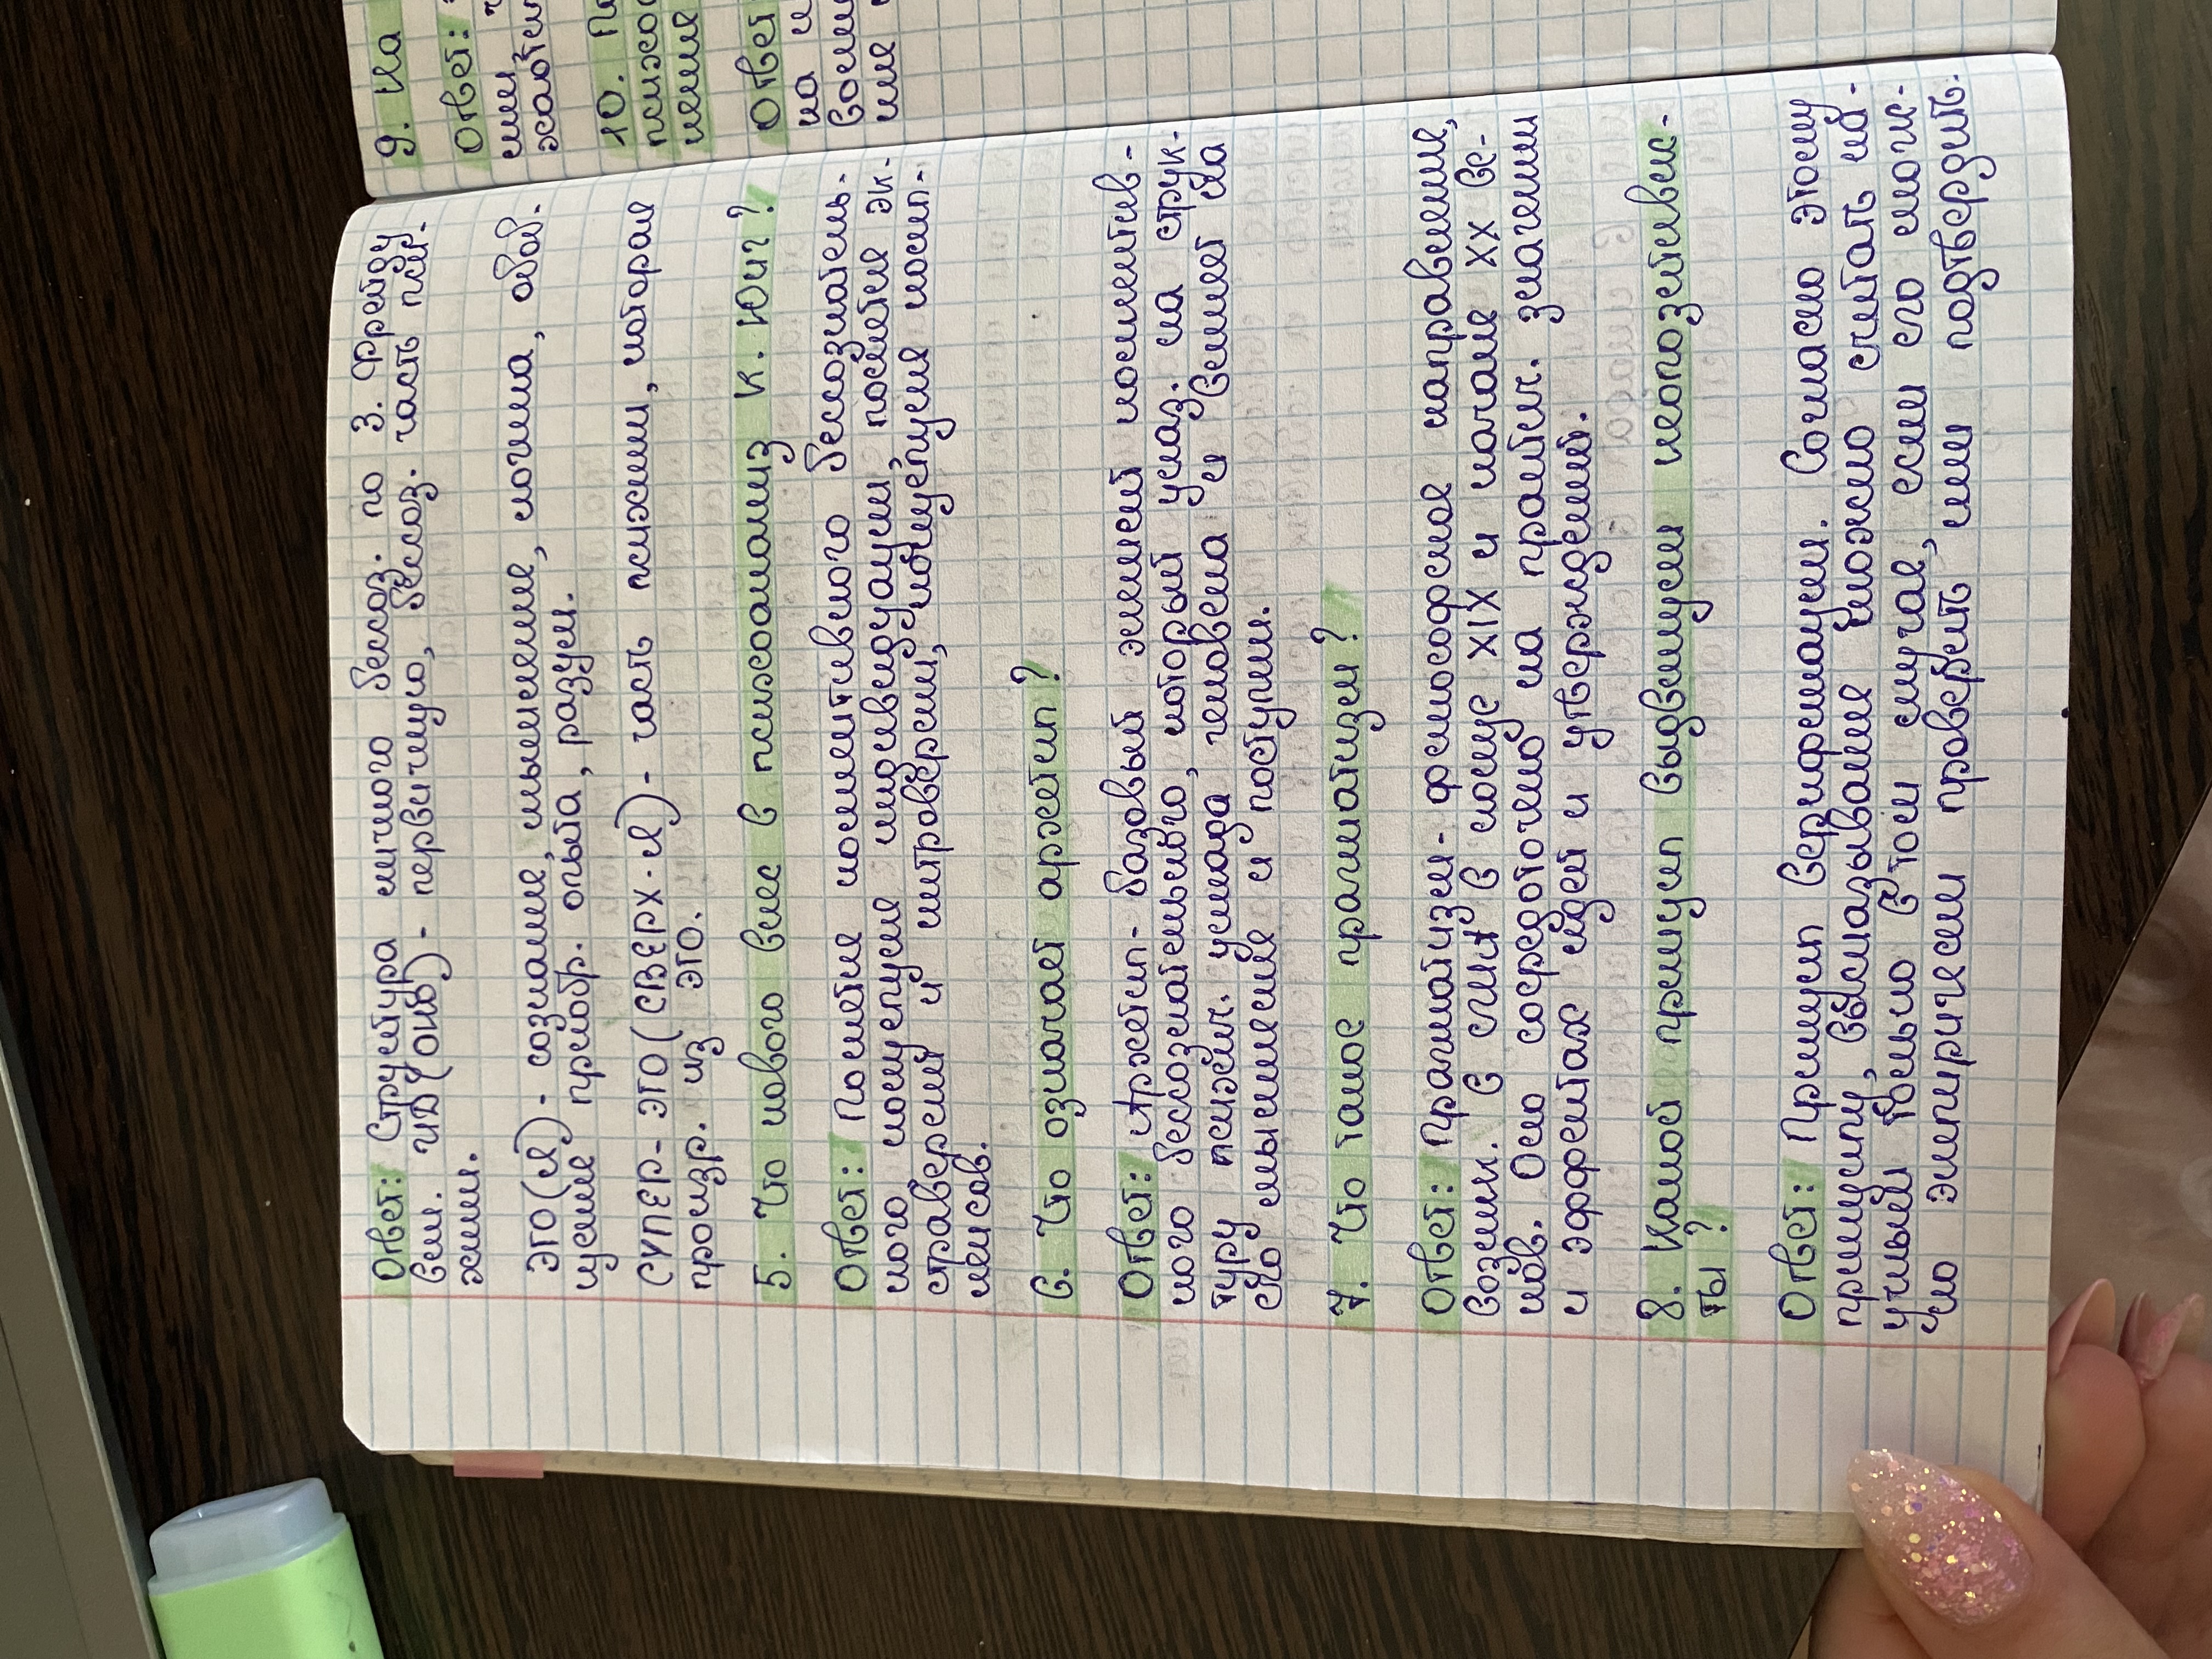 Ответ: Структура личного бессоз. по З. Фрейду
вкл. ИД(ОНО) - первичную, бессоз. часть пси-
хики.
ЭГО(Я) - сознание, мышление, логика, обоб-
щение приобр. опыта, разум.
СУПЕР-ЭГО(СВЕРХ-Я) - часть психики, которая
произр. из ЭГО.
5. Что нового внес в психоанализ К. Юнг?
Ответ: Понятие коллективного бессознатель-
ного концепция индивидуации, понятия эк-
страверсии и интроверсии, концепция комп-
лексов.
6. Что означает архетип?
Ответ: Архетип - базовый элемент коллектив-
ного бессознательного, который указ. на струк-
туру психич. уклада человека и влияет на
его мышление и поступки.
7. Что такое прагматизм?
Ответ: Прагматизм - философское направление,
возникш. в США в конце XIX и начале XX ве-
ков. Оно сосредоточено на практич. значении
и эффектах идей и утверждений.
8. Какой принцип выдвинули неопозитивис-
ты?
Ответ: Принцип верификации. Согласно этому
принципу, высказывание можно считать на-
учным только в том случае, если его мож-
но эмпирически проверить или подтвердить.
9. На
Ответ:
10.
Ответ
на